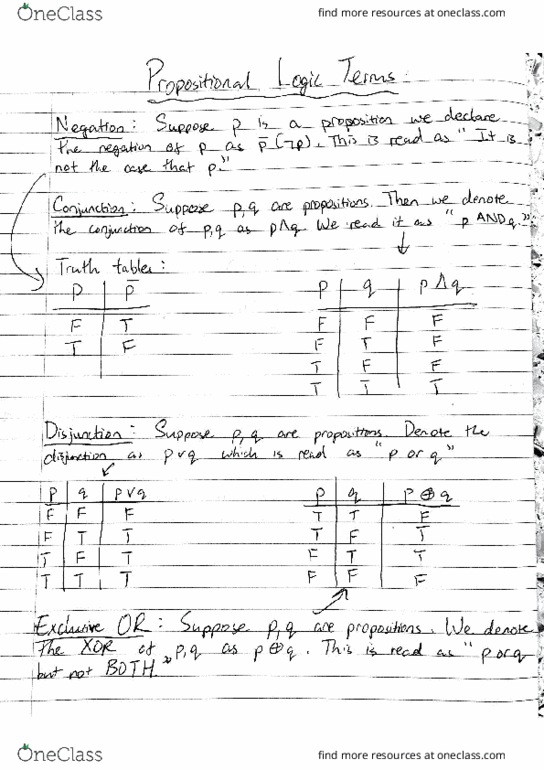 OneClass
find more resources at oneclass.com
Propositional Logic Terms:
Negation: Suppose p is a proposition we declare
the negation of p as p̄ (¬p). This is read as "It is
not the case that p."
Conjunction: Suppose p,q are propositions. Then we denote
the conjunction of p,q as p∧q. We read it as "p AND q."
Truth tables:
p p̄
F T
T F
p q p∧q
F F F
F T F
T F F
T T T
Disjunction: Suppose p,q are propositions. Denote the
disjunction as p∨q which is read as "p or q"
p q p∨q
F F F
F T T
T F T
T T T
p q p⊕q
T T F
T F T
F T T
F F F
Exclusive OR: Suppose p,q are propositions. We denote
the XOR of p,q as p⊕q. This is read as "p or q
but not BOTH."
OneClass
find more resources at oneclass.com